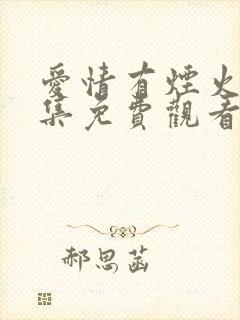 愛情有煙火
集免費觀看
郝思菡